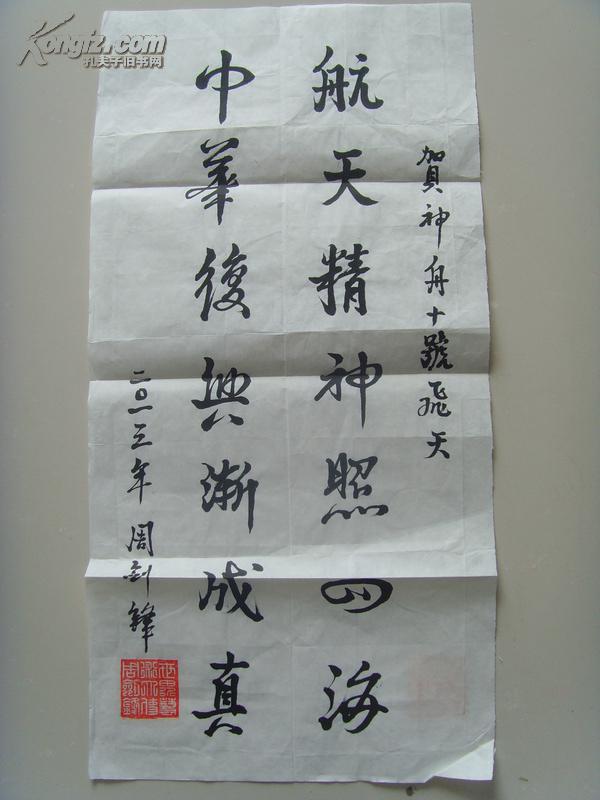 賀神舟十號飛天
航天精神照四海
中華復興漸成真
二〇一三年 周剑鋒
Kongfz.com
孔夫子旧书网